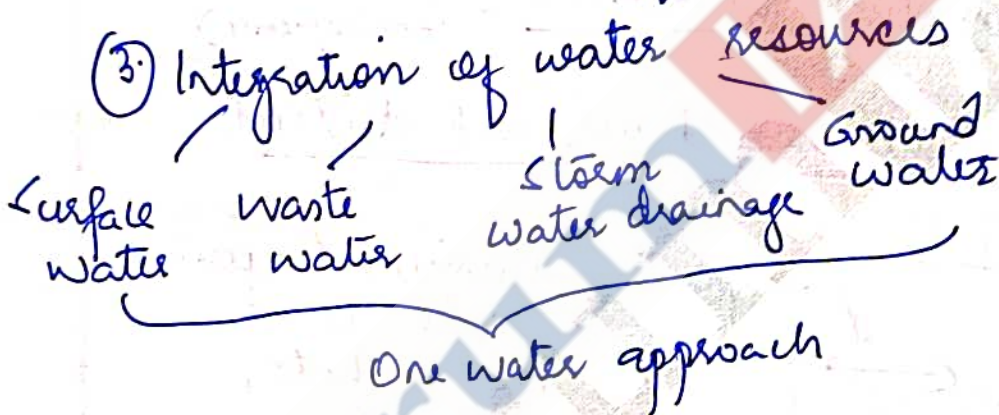 3. Integration of water resources
Surface water
waste water
Storm water drainage
Ground water
One water approach